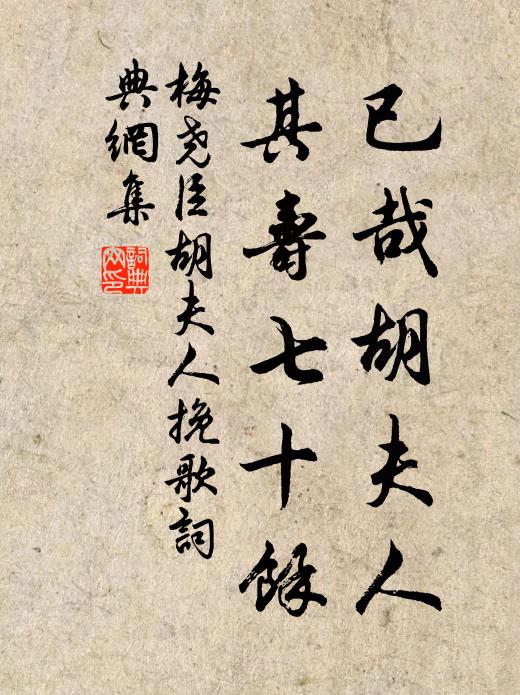 已哉胡夫人
其壽七十餘
梅尧臣胡夫人挽歌詞
典網集
詞典文印